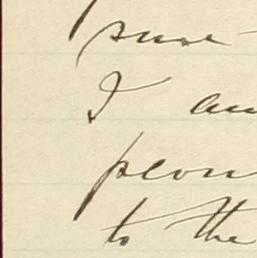 sure
I am
plow
to the